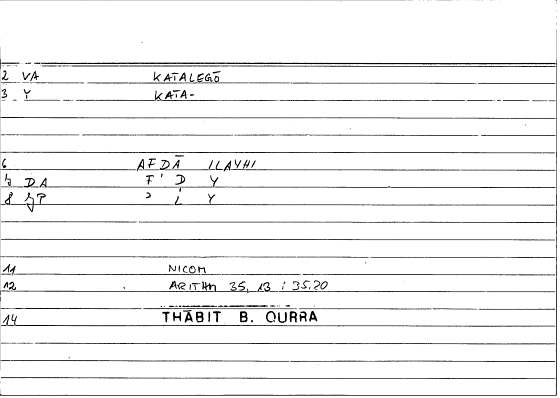 2 VA KATALEGŌ
3 Y KATA-
6 AFDĀ ILAYHI
DA F ' D Y
8 Y
11 NICOM
12 ARITHM 35, 13 ; 35.20
14 THĀBIT B. QURRA